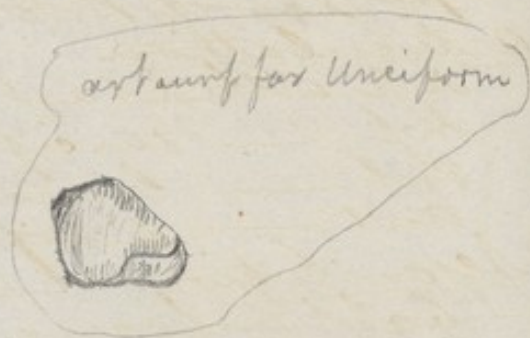 art surf for Unciform